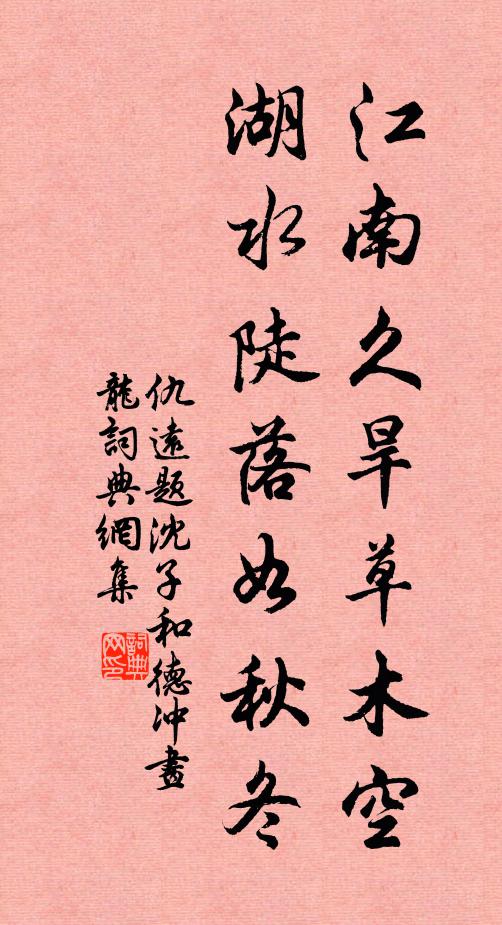 江南久旱草木空
湖水陡落如秋冬
仇遠題沈子和德冲畫
龍詞典網集
詞典網印